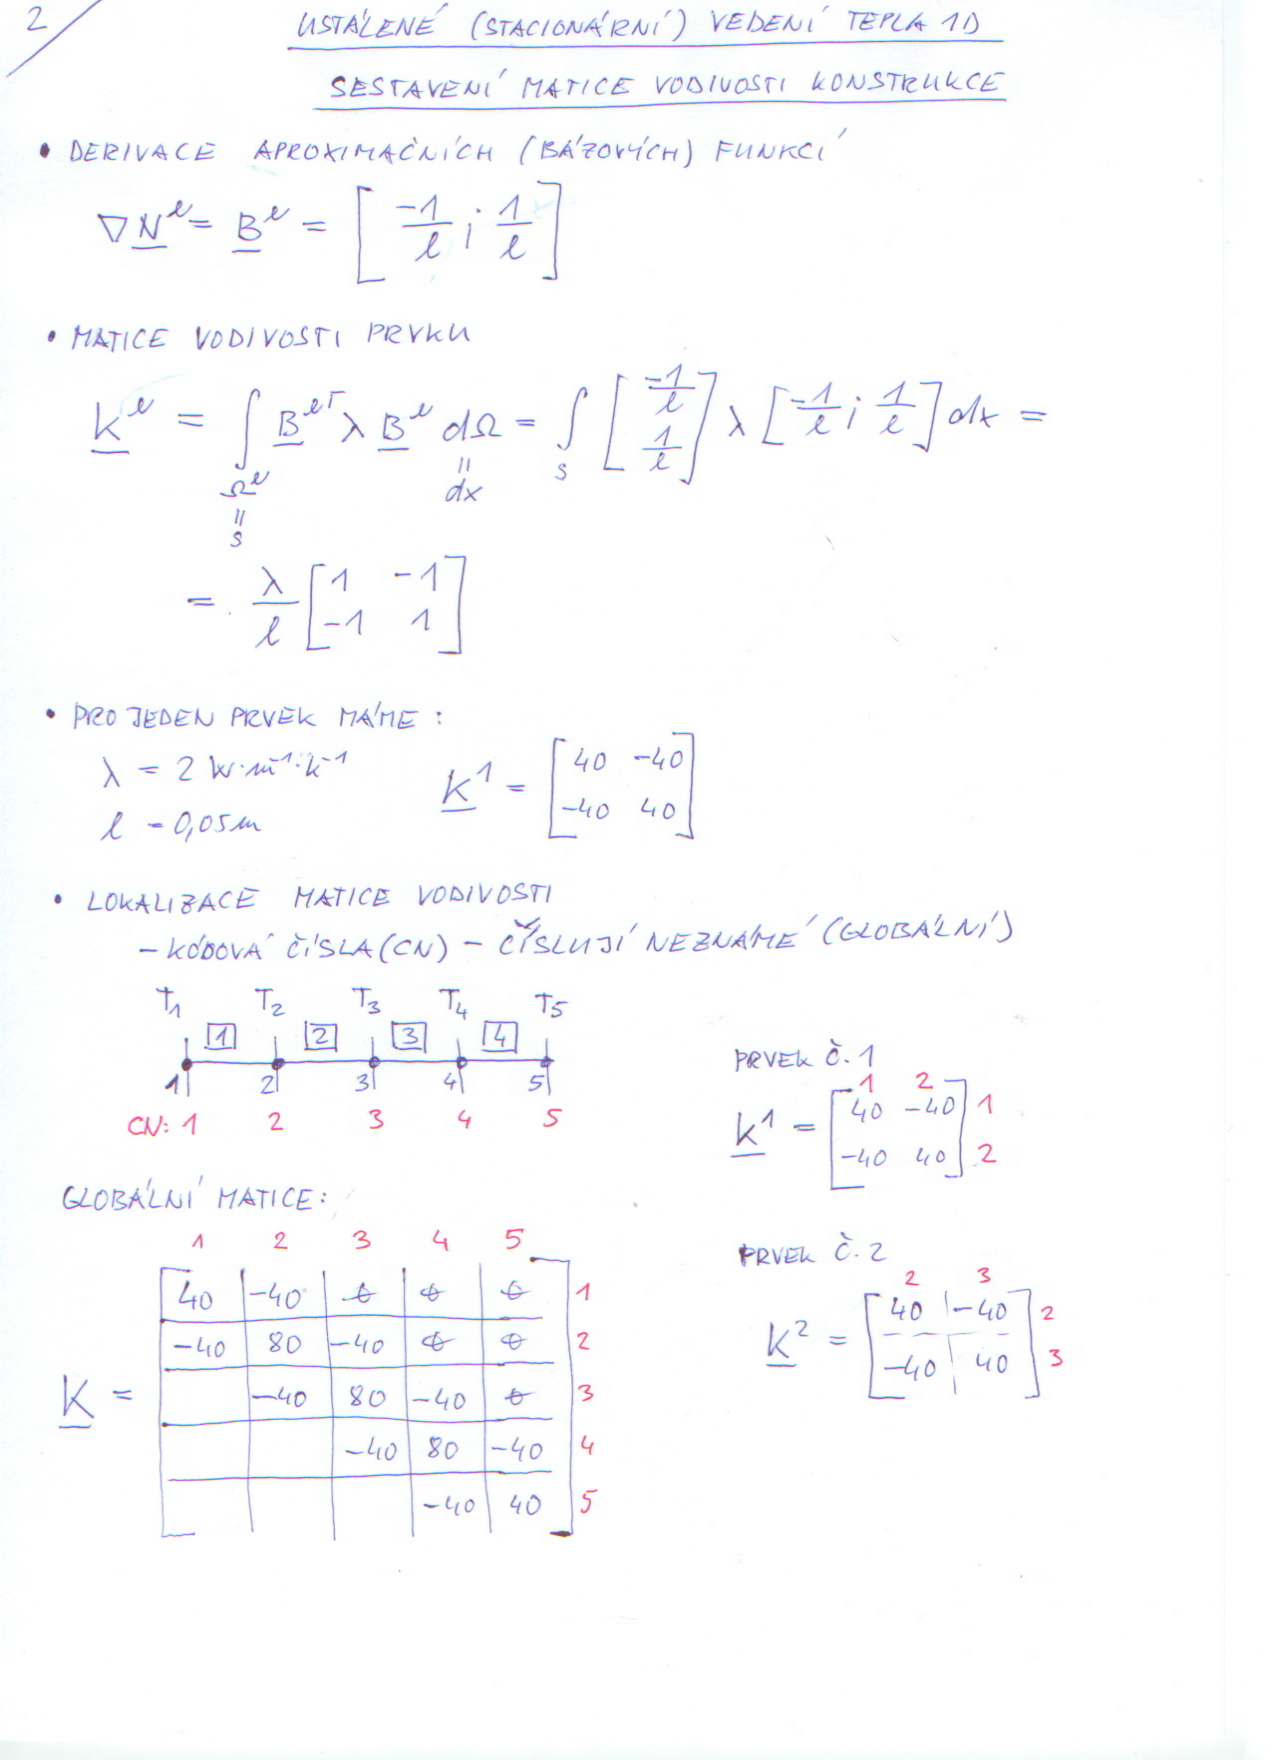 2
USTÁLENÉ (STACIONÁRNÍ) VEDENÍ TEPLA 1D
SESTAVENÍ MATICE VODIVOSTI KONSTRUKCE
• DERIVACE APROXIMAČNÍCH (BÁZOVÝCH) FUNKCÍ
∇N^e = B^e = [ -1/l ; 1/l ]
• MATICE VODIVOSTI PRVKU
K^e = ∫ B^eT λ B^e dΩ = ∫ [ -1/l 1/l ] λ [ -1/l ; 1/l ] dx =
Ω^e = s
dΩ = dx
s
= λ/l [ 1 -1
-1 1 ]
• PRO JEDEN PRVEK MÁME:
λ = 2 W·m⁻¹·K⁻¹
l = 0,05m
K^1 = [ 40 -40
-40 40 ]
• LOKALIZACE MATICE VODIVOSTI
- KÓDOVÁ ČÍSLA (CN) - ČÍSLUJÍ NEZNÁMÉ (GLOBÁLNÍ)
T1 T2 T3 T4 T5
1 2 3 4
1 2 3 4 5
CN: 1 2 3 4 5
PRVEK Č.1
1 2
K^1 = [ 40 -40 ] 1
[ -40 40 ] 2
GLOBÁLNÍ MATICE:
1 2 3 4 5
40 -40 0 0 0 1
-40 80 -40 0 0 2
K = -40 80 -40 0 3
-40 80 -40 4
-40 40 5
PRVEK Č.2
2 3
K^2 = [ 40 -40 ] 2
[ -40 40 ] 3